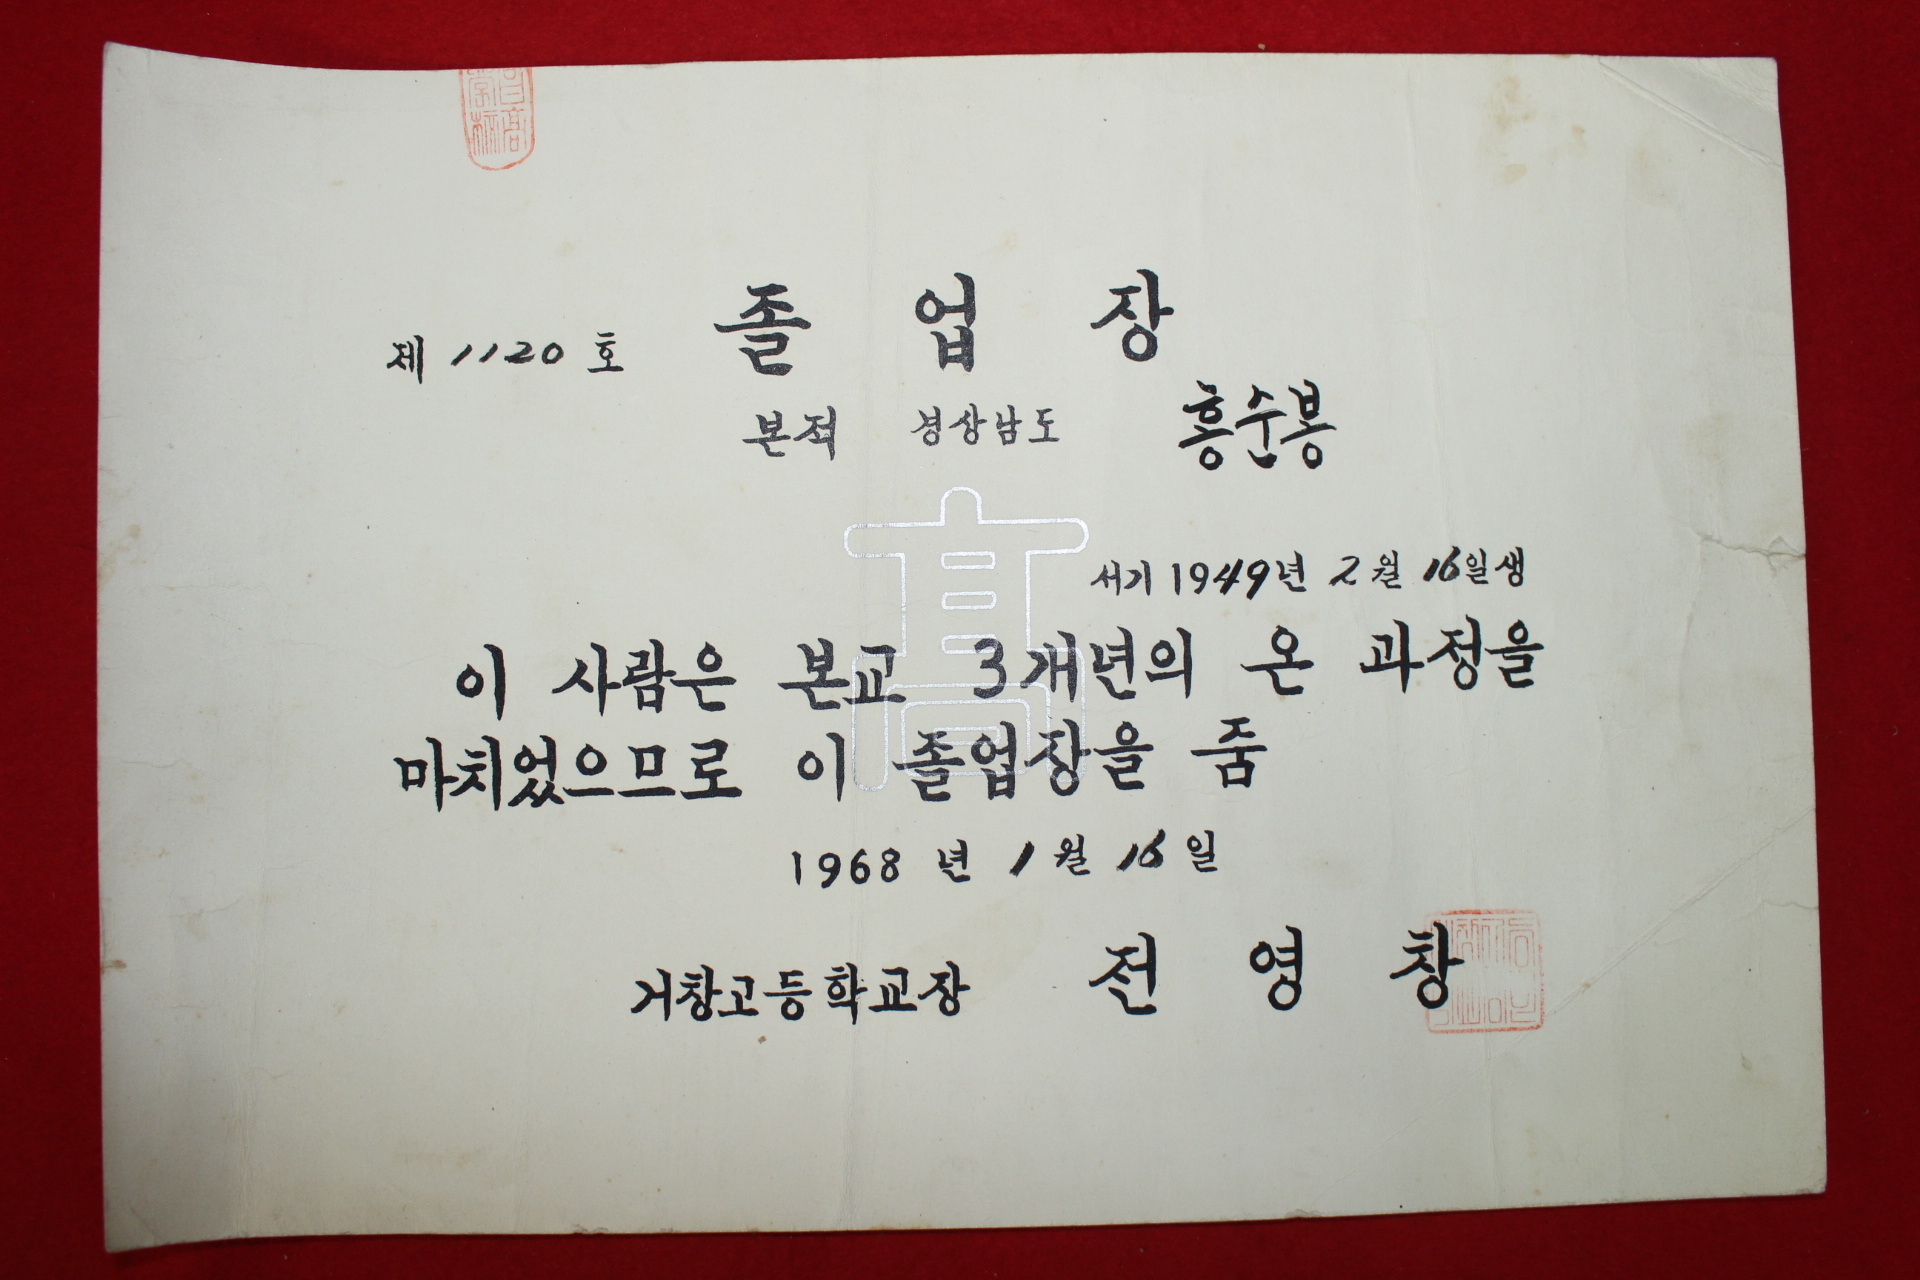 졸업장
제 1120 호
본적 경상남도 홍순봉
서기 1949년 2월 16일생
이 사람은 본교 3개년의 온 과정을
마치었으므로 이 졸업장을 줌
1968 년 1 월 16 일
거창고등학교장 전영창
高